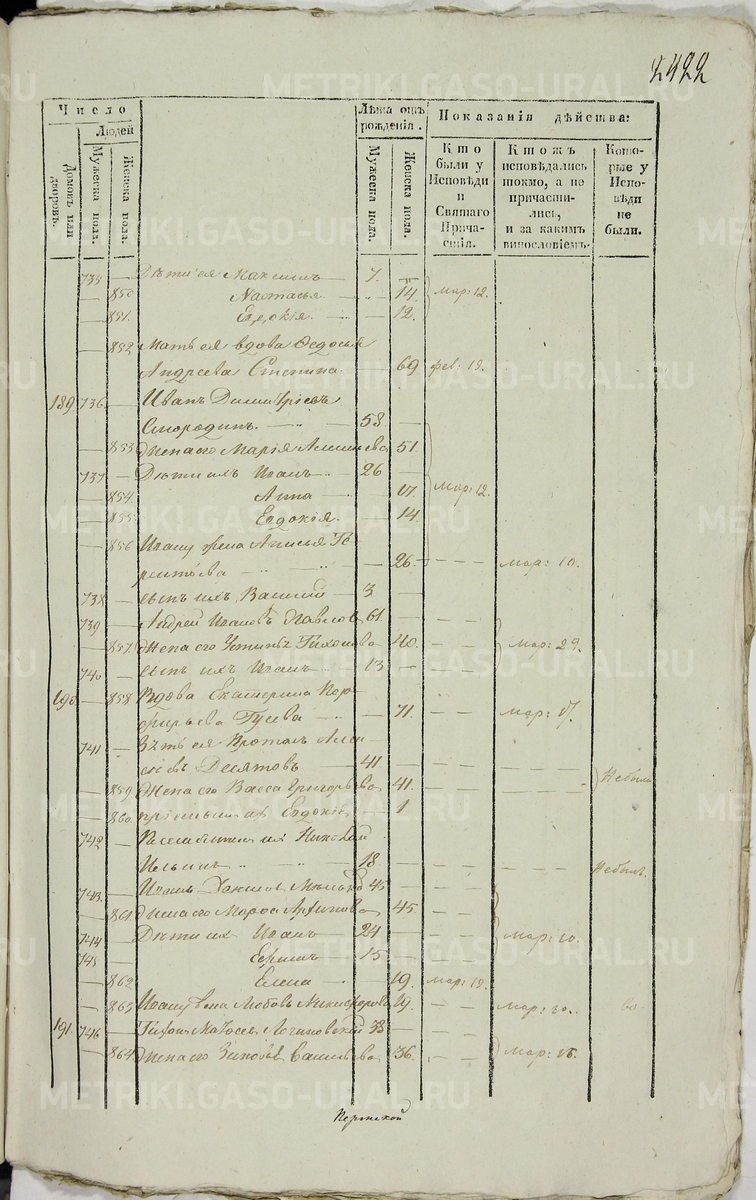 2422
Число
Людей
Домовъ или дворовъ.
Мужеска пола.
Женска пола.
Лѣта отъ рожденія.
Мужеска пола.
Женска пола.
Показанія дѣйства:
Кто были у Исповѣди и Святаго Причастія.
Ктожъ исповѣдались токмо, а не причастились, и за какимъ винословіемъ.
Которые у Исповѣди не были.
735 — Дѣти ея Максимъ — 7. —
— 850 Настасья — 14. Мар: 12.
— 851. Евдокія. — 12.
— 852 Мать ея вдова Федосья
Андреева Степина — 69 фев: 19.
189 736 — Иванъ Димитріевъ
Смородинъ. — 58 —
— 853 Жена его Марія — 51.
737 — Дѣти ихъ Иванъ — 26 — Мар: 12.
— 854 Анна — 17.
— 855 Евдокія. — 14.
— 856 Ивану жена Анисья
— 26. — — Мар: 10.
738 — сынъ ихъ Василій — 3 —
739 — Андрей Ивановъ Павлов 61. — —
— 857. Жена его Устинья Тихонова 40. — — Мар: 29.
740 — сынъ ихъ Иванъ — 13 — — —
190. — 858 Вдова Екатерина Пор-
фирьева Гусева — 71. — — Мар: 17.
741 — Зять ея
Десятовъ — 41 — — —
— 859 Жена его Васса Григорьева 41. — — Небыли
— 860 Евдокія — 1
742 — ихъ Николай
Ильинъ — 18 — — — Небылъ.
743. — Иванъ 45 — — —
— 861 Жена его Марфа Архипова 45. — —
744 — Дѣти ихъ Иванъ — 24 — — — Мар: 10.
745 — 15 — — —
— 862 Елена — 19. Мар: 12.
— 863 Ивану жена Любовь Никифорова 19. — — Мар: 30.
191. 746 — Тихонъ Логиновской 38 — — —
— 864 Жена его Зиновья Васильева 36. — — Мар: 16.
Пермской
METRIKI.GASO-URAL.RU